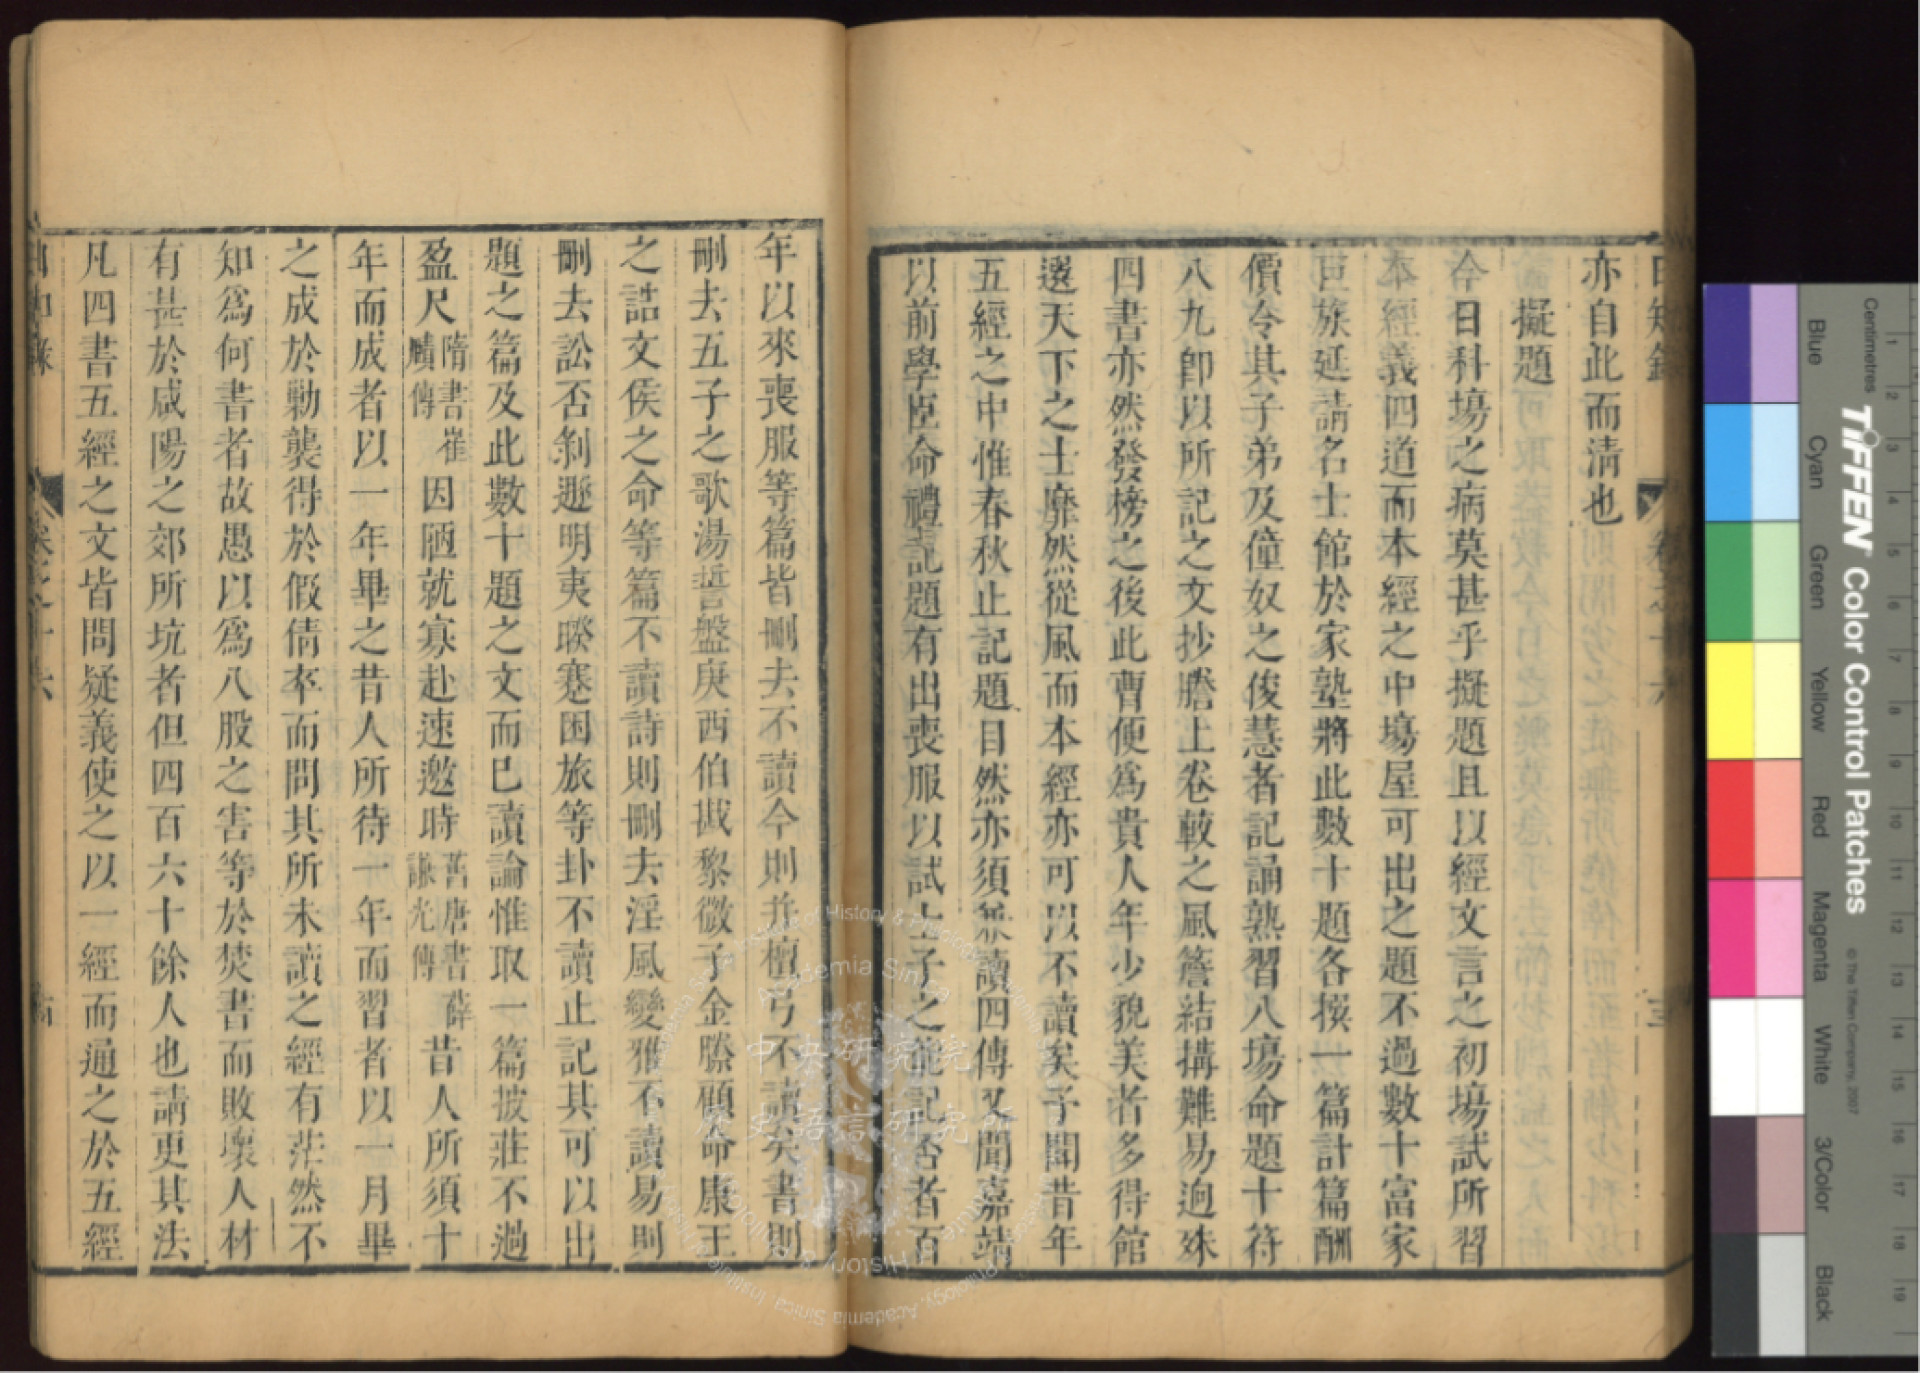 日知錄 卷之十六
亦自此而清也
擬題
今日科塲之病莫甚乎擬題且以經文言之初塲試所習
本經義四道而本經之中塲屋可出之題不過數十富家
巨族延請名士館於家塾將此數十題各撰一篇計篇酬
價令其子弟及僮奴之俊慧者記誦熟習入塲命題十符
八九卽以所記之文抄謄上卷較之風簷結搆難易逈殊
四書亦然發榜之後此曹便爲貴人年少貌美者多得館
選天下之士靡然從風而本經亦可以不讀矣予聞昔年
五經之中惟春秋止記題目然亦須兼讀四傳又聞嘉靖
以前學臣命禮記題有出喪服以試士子之能記否者百
年以來喪服等篇皆刪去不讀今則并檀弓不讀矣書則
刪去五子之歌湯誓盤庚西伯戡黎微子金縢顧命康王
之誥文侯之命等篇不讀詩則刪去淫風變雅不讀易則
刪去訟否剥遯明夷睽蹇困旅等卦不讀止記其可以出
題之篇及此數十題之文而已讀論惟取一篇披莊不過
盈尺隋書崔賾傳因陋就寡赴速邀時舊唐書薛謙光傳昔人所須十
年而成者以一年畢之昔人所待一年而習者以一月畢
之成於勦襲得於假倩卒而問其所未讀之經有茫然不
知爲何書者故愚以爲八股之害等於焚書而敗壞人材
有甚於咸陽之郊所坑者但四百六十餘人也請更其法
凡四書五經之文皆問疑義使之以一經而通之於五經
日知錄 卷之十六
中央研究院
歷史語言研究所
Academia Sinica
TIFFEN Color Control Patches
© The Tiffen Company, 2007
Centimetres
Blue
Cyan
Green
Yellow
Red
Magenta
White
3/Color
Black
1 2 3 4 5 6 7 8 9 10 11 12 13 14 15 16 17 18 19